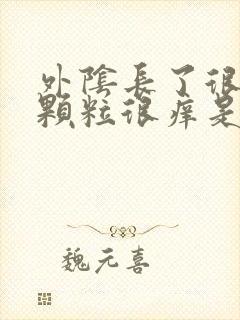 外陰長了很
顆粒很痒是
魏元喜